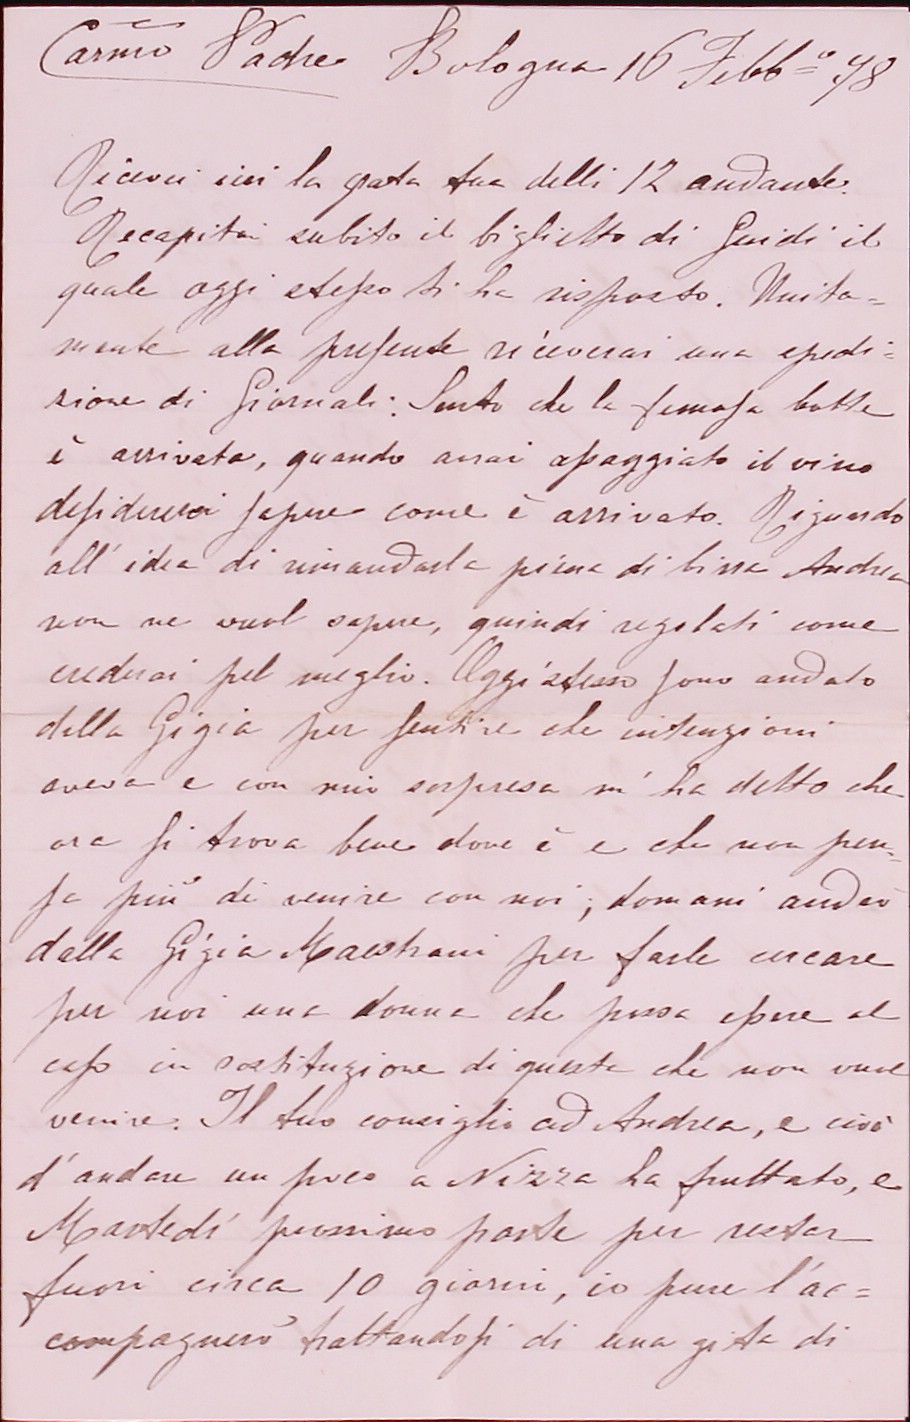 Carmo Padre Bologna 16 Febbo 78
Ricevei ieri la grata tua delli 12 andante.
Recapitai subito il biglietto di Guidi il
quale oggi stesso ti ha risposto. Unita=
mente alla presente riceverai una spedi=
zione di Giornali. Sento che la famosa botte
è arrivata, quando avrai assaggiato il vino
desidererei sapere come è arrivato. Riguardo
all'idea di rimandarla piena di birra Andrea
non ne vuol sapere, quindi regolati come
crederai pel meglio. Oggi stesso sono andato
dalla Gigia per sentire che intenzioni
aveva e con mia sorpresa m'ha detto che
ora si trova bene dove è e che non pen=
sa più di venire con noi; domani andrò
dalla Gigia Maestrani per farle cercare
per noi una donna che possa essere al
caso in sostituzione di questa che non vuole
venire. Il tuo consiglio ad Andrea, e cioè
d'andare un poco a Nizza ha fruttato, e
Martedì prossimo parte per restar
fuori circa 10 giorni, io pure l'ac=
compagnerò trattandosi di una gita di